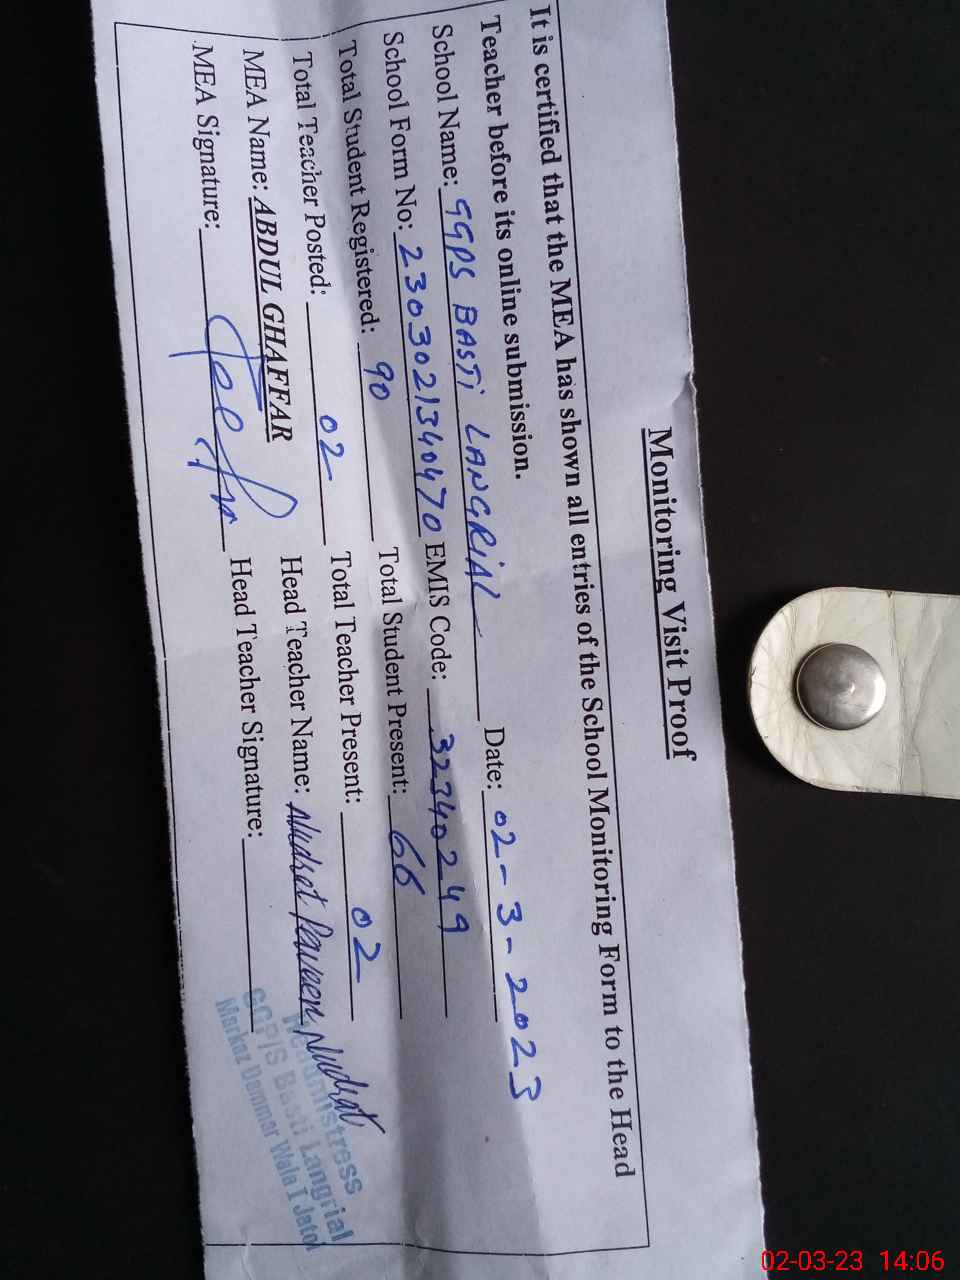 Monitoring Visit Proof
It is certified that the MEA has shown all entries of the School Monitoring Form to the Head
Teacher before its online submission.
School Name: GGPS BASTI LANGRIAL Date: 02-3-2023
School Form No: 2303021340470 EMIS Code: 32340249
Total Student Registered: 90 Total Student Present: 66
Total Teacher Posted: 02 Total Teacher Present: 02
MEA Name: ABDUL GHAFFAR Head Teacher Name: Nudrat Parveen
MEA Signature: Head Teacher Signature: Nudrat
Headmistress
GGP/S Basti Langrial
Markaz Dammar Wala I Jatoi
02-03-23 14:06